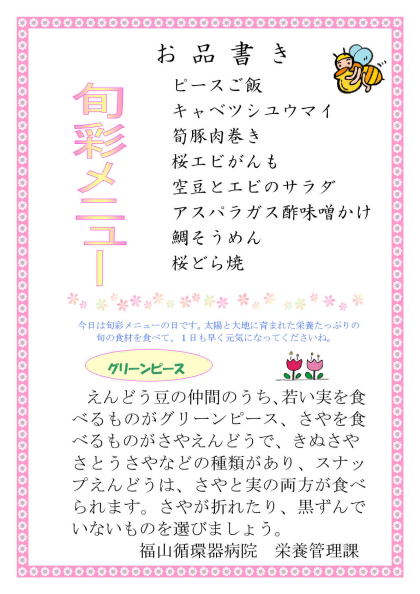 お品書き
旬彩メニュー
ピースご飯
キャベツシュウマイ
筍豚肉巻き
桜エビがんも
空豆とエビのサラダ
アスパラガス酢味噌かけ
鯛そうめん
桜どら焼
今日は旬彩メニューの日です。太陽と大地に育まれた栄養たっぷりの
旬の食材を食べて、１日も早く元気になってくださいね。
グリーンピース
えんどう豆の仲間のうち、若い実を食
べるものがグリーンピース、さやを食
べるものがさやえんどうで、きぬさや
さとうさやなどの種類があり、スナッ
プえんどうは、さやと実の両方が食べ
られます。さやが折れたり、黒ずんで
いないものを選びましょう。
福山循環器病院　栄養管理課